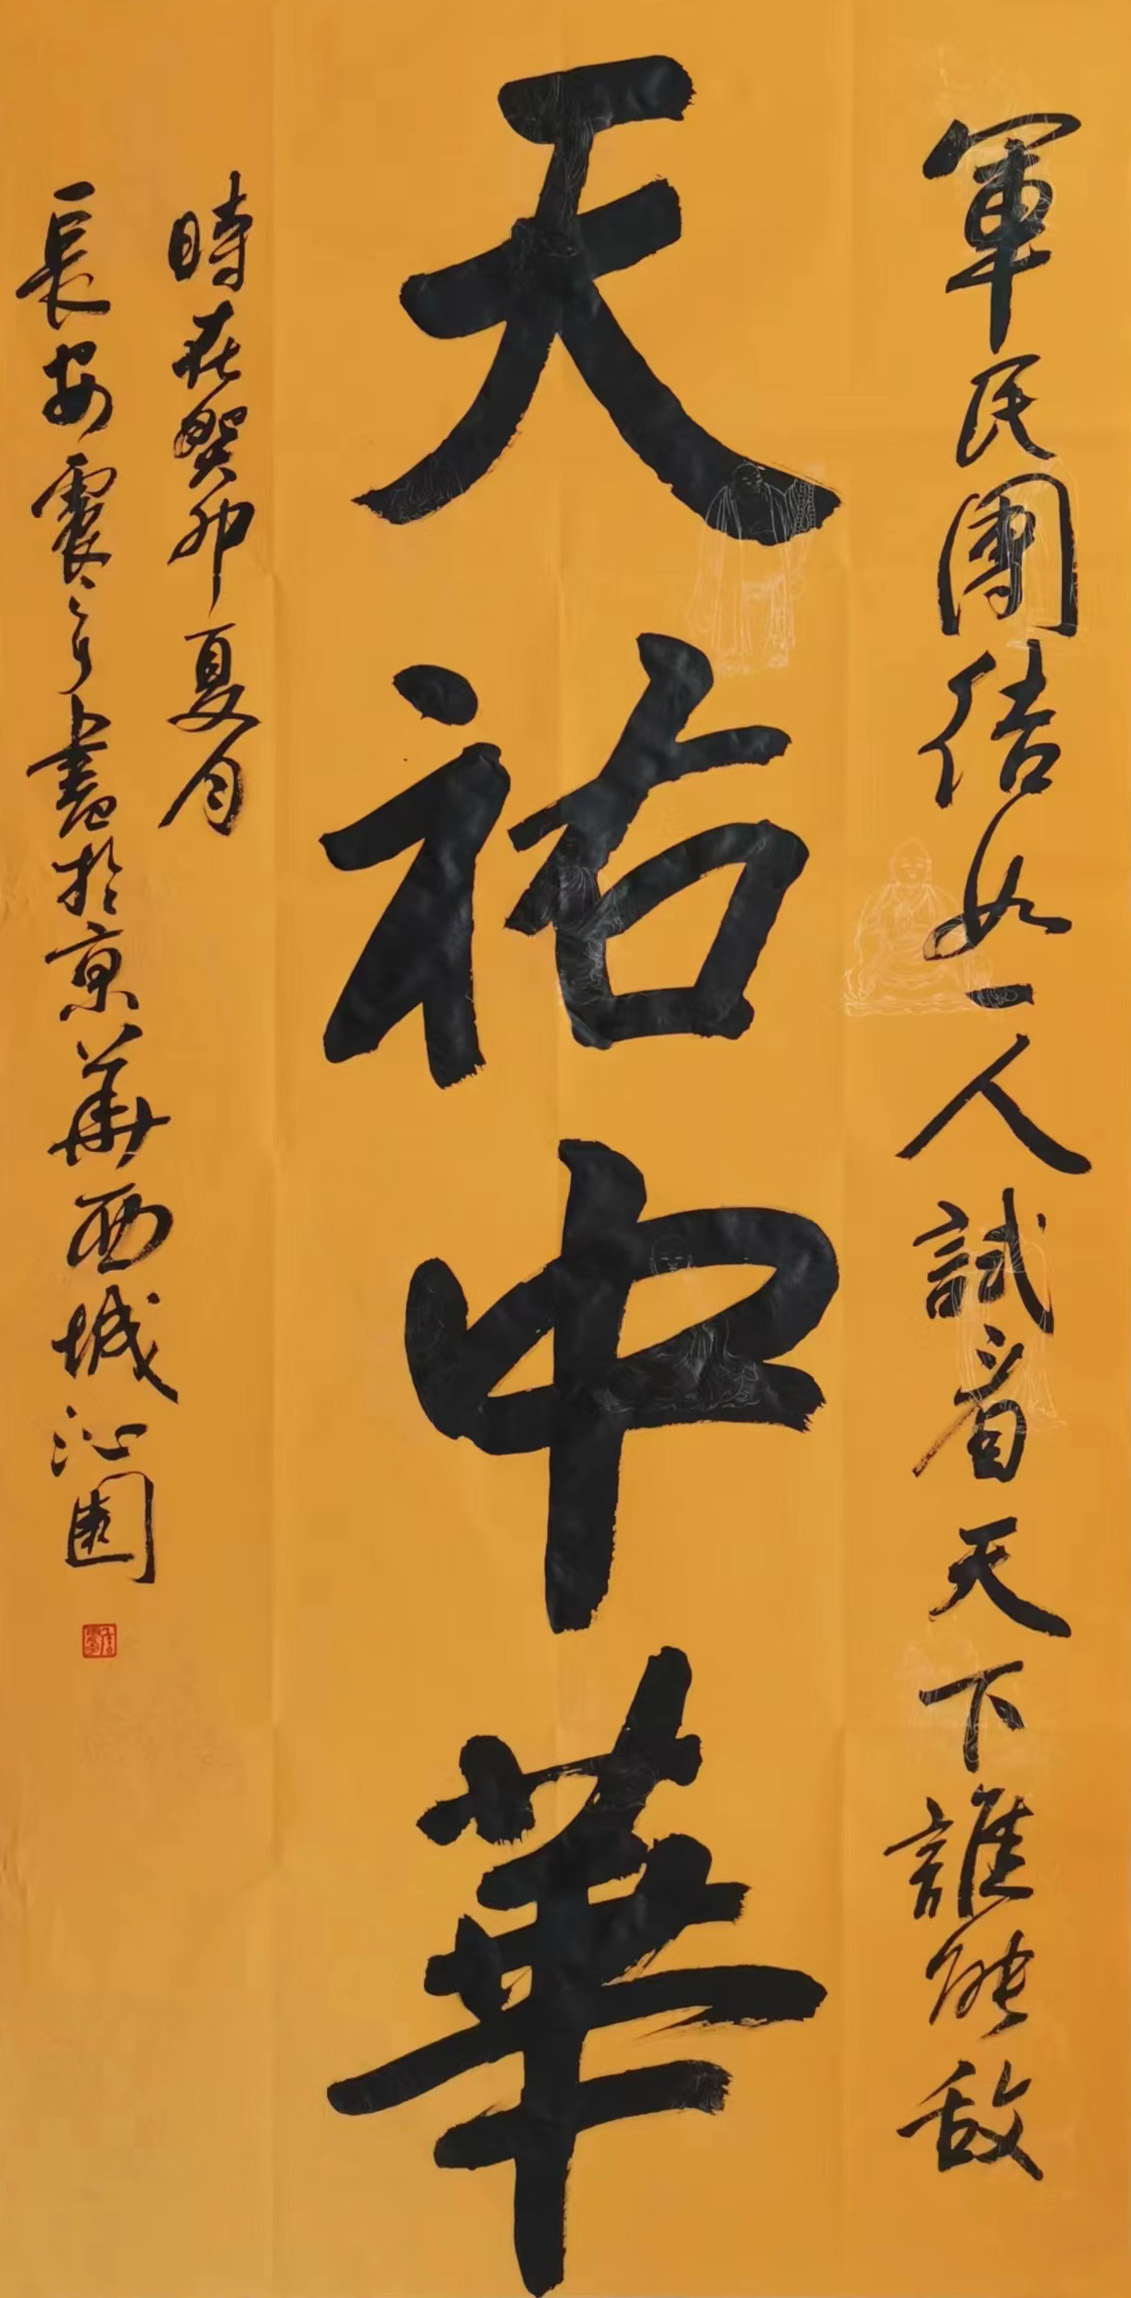 軍民團结如一人試看天下誰能敌
天祐中華
時在癸卯夏月
長安震之書於京華西城沁園